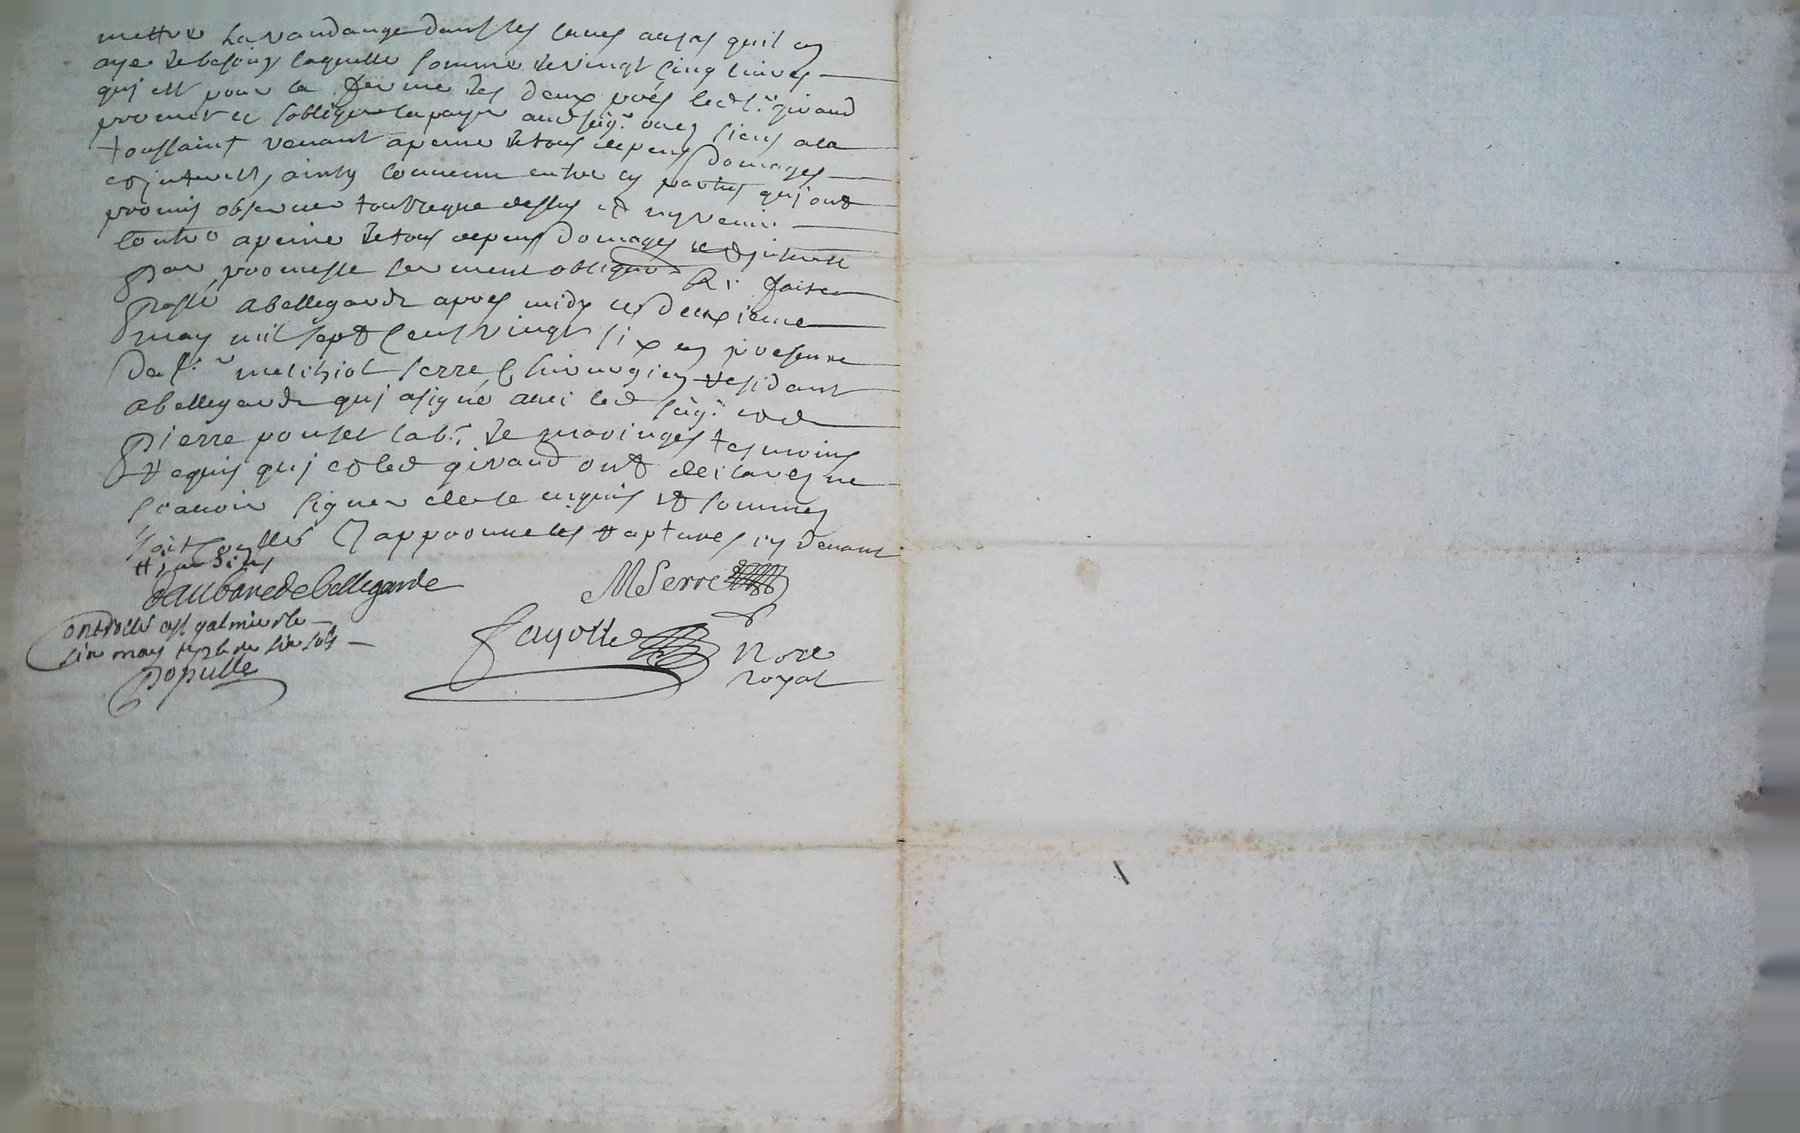 mettre la vandange dans les cuves au cas quil en
aye de besoing laquelle somme de vingt cinq livres
quj est pour la ferme des deux prés led sr giraud
promet et soblige la payer aud seigr ou es siens a la
toussaint venant apeine de tous depens domages
et jnterest, ainsy convenu entre les parties quj ont
promis observer tout ce que dessus et ny venir
contre apeine de tous depens domages et jnterest
par promesse serment obligaon Rn faisen
passé a bellegarde apres midy le deuxieme
may mil sept cens vingt six en presence
de sr melchiol serre chirurgien residant
a bellegarde quj a signé avec led seigr et de
pierre pouset labr de maringes tesmoins
requis quj et led giraud ont declarés ne
scavoir signer de ce enquis et sommes
 Japprouve les raptures cy devant
daubarede bellegarde
M Serre
Controllé a st galmier le
six may 1726
populle
fayolle
nore
royal